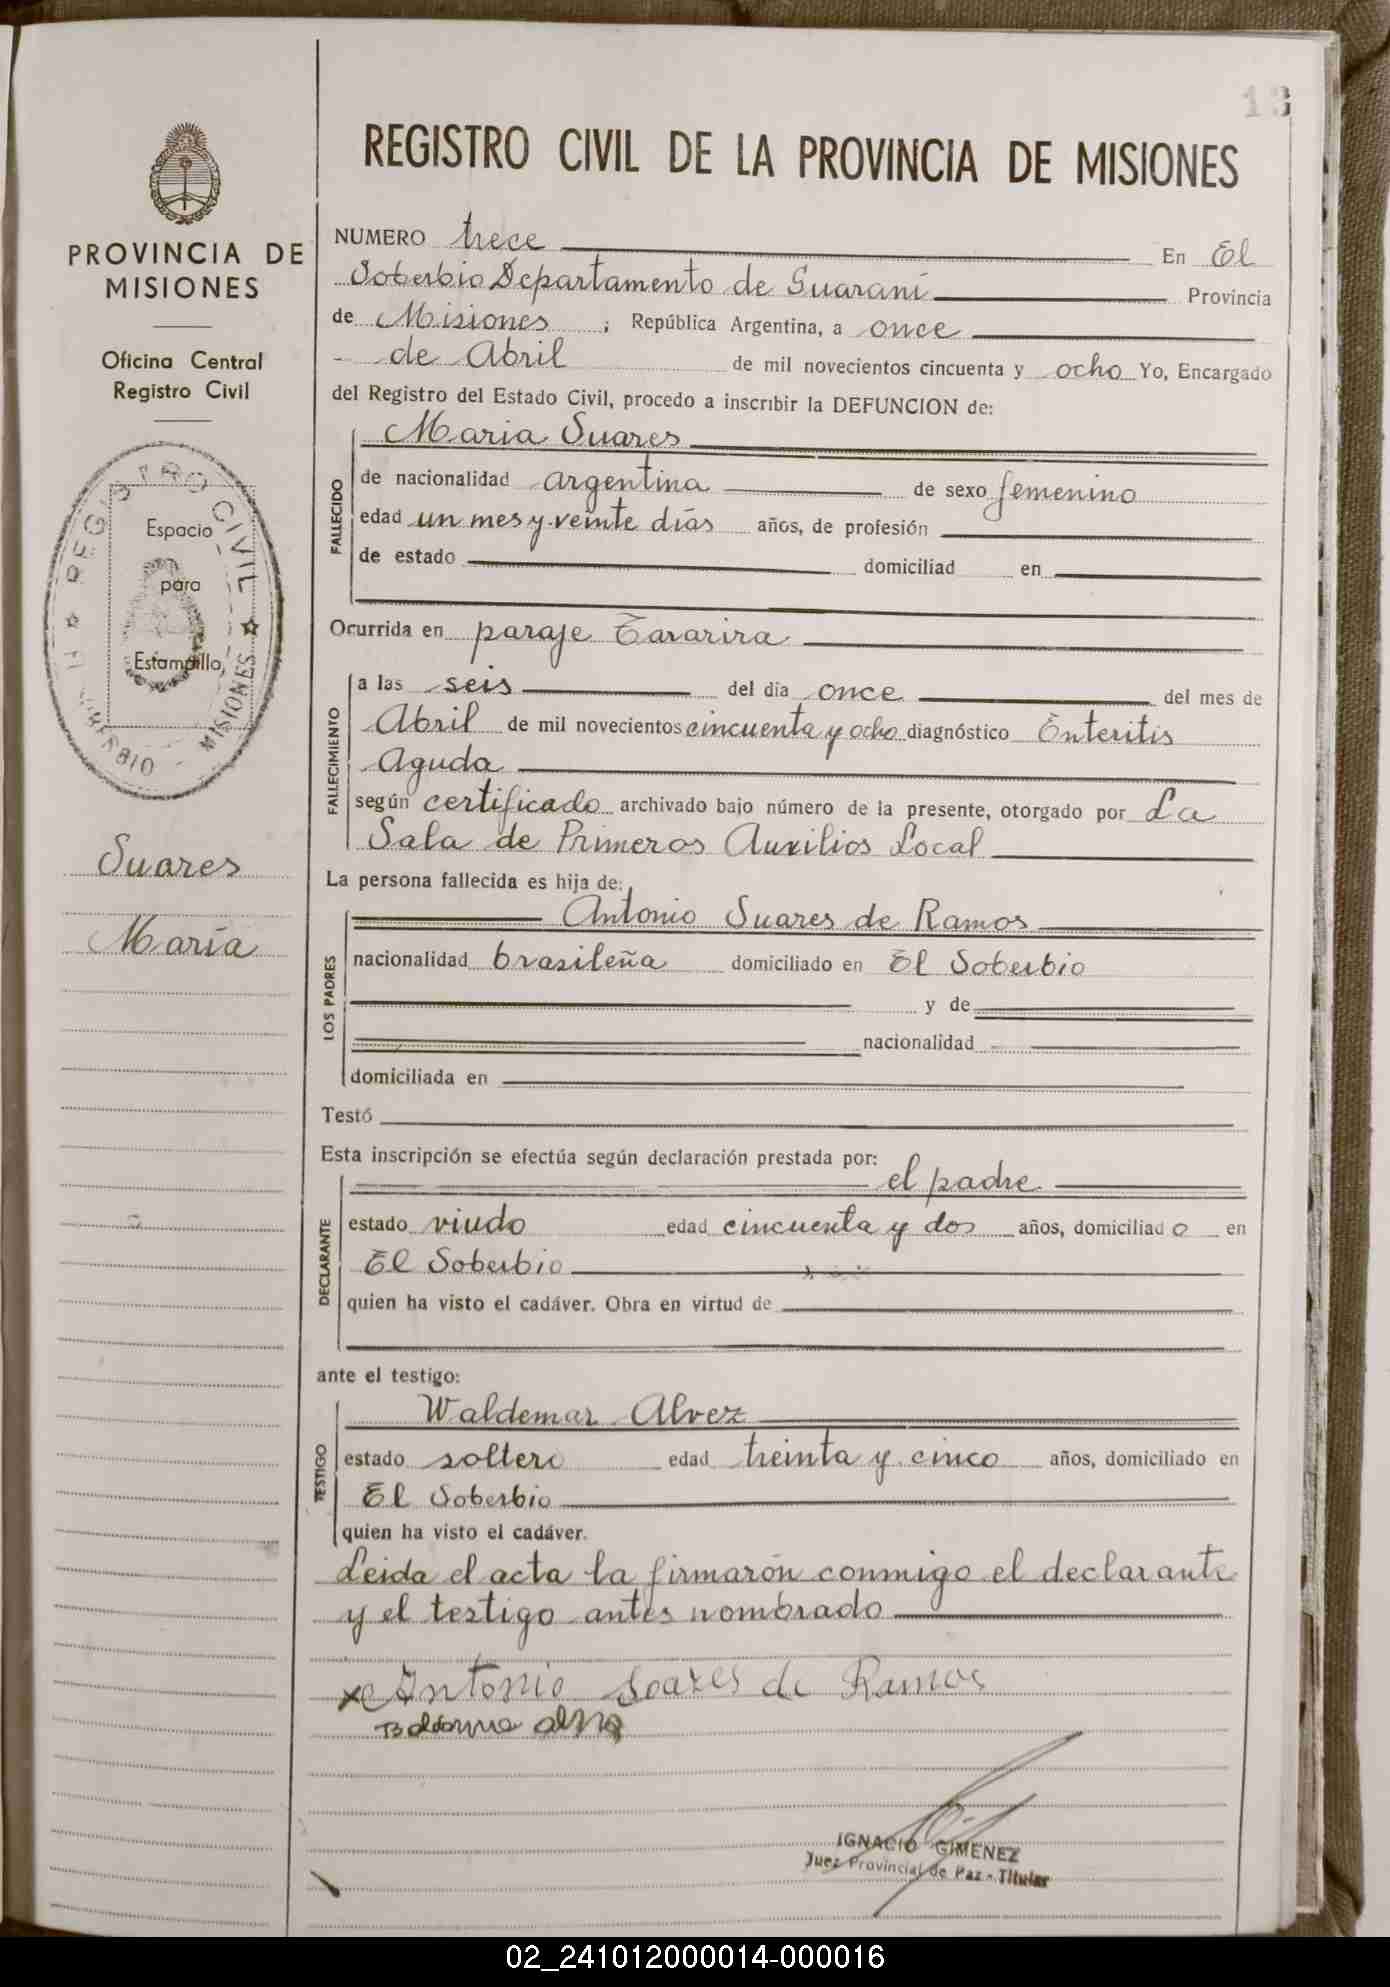 13
REGISTRO CIVIL DE LA PROVINCIA DE MISIONES
PROVINCIA DE
MISIONES
Oficina Central
Registro Civil
REGISTRO CIVIL
MISIONES
Espacio
para
Estampilla
Suares
María
NUMERO trece En El
Soberbio Departamento de Guaraní Provincia
de Misiones ; República Argentina, a once
de Abril de mil novecientos cincuenta y ocho Yo, Encargado
del Registro del Estado Civil, procedo a inscribir la DEFUNCION de:
FALLECIDO
Maria Suares
de nacionalidad Argentina de sexo femenino
edad un mes y veinte días años, de profesión
de estado domiciliad en
Ocurrida en paraje Tararira
FALLECIMIENTO
a las seis del día once del mes de
Abril de mil novecientos cincuenta y ocho diagnóstico Enteritis
Aguda
según certificado archivado bajo número de la presente, otorgado por La
Sala de Primeros Auxilios Local
La persona fallecida es hija de:
LOS PADRES
Antonio Suares de Ramos
nacionalidad brasileña domiciliado en El Soberbio
y de
nacionalidad
domiciliada en
Testó
Esta inscripción se efectúa según declaración prestada por:
DECLARANTE
el padre
estado viudo edad cincuenta y dos años, domiciliado en
El Soberbio
quien ha visto el cadáver. Obra en virtud de
ante el testigo:
TESTIGO
Waldemar Alvez
estado soltero edad treinta y cinco años, domiciliado en
El Soberbio
quien ha visto el cadáver.
Leida el acta la firmarón conmigo el declarante
y el testigo antes nombrado
x Antonio Soares de Ramos
IGNACIO GIMENEZ
Juez Provincial de Paz - Titular
02_241012000014-000016